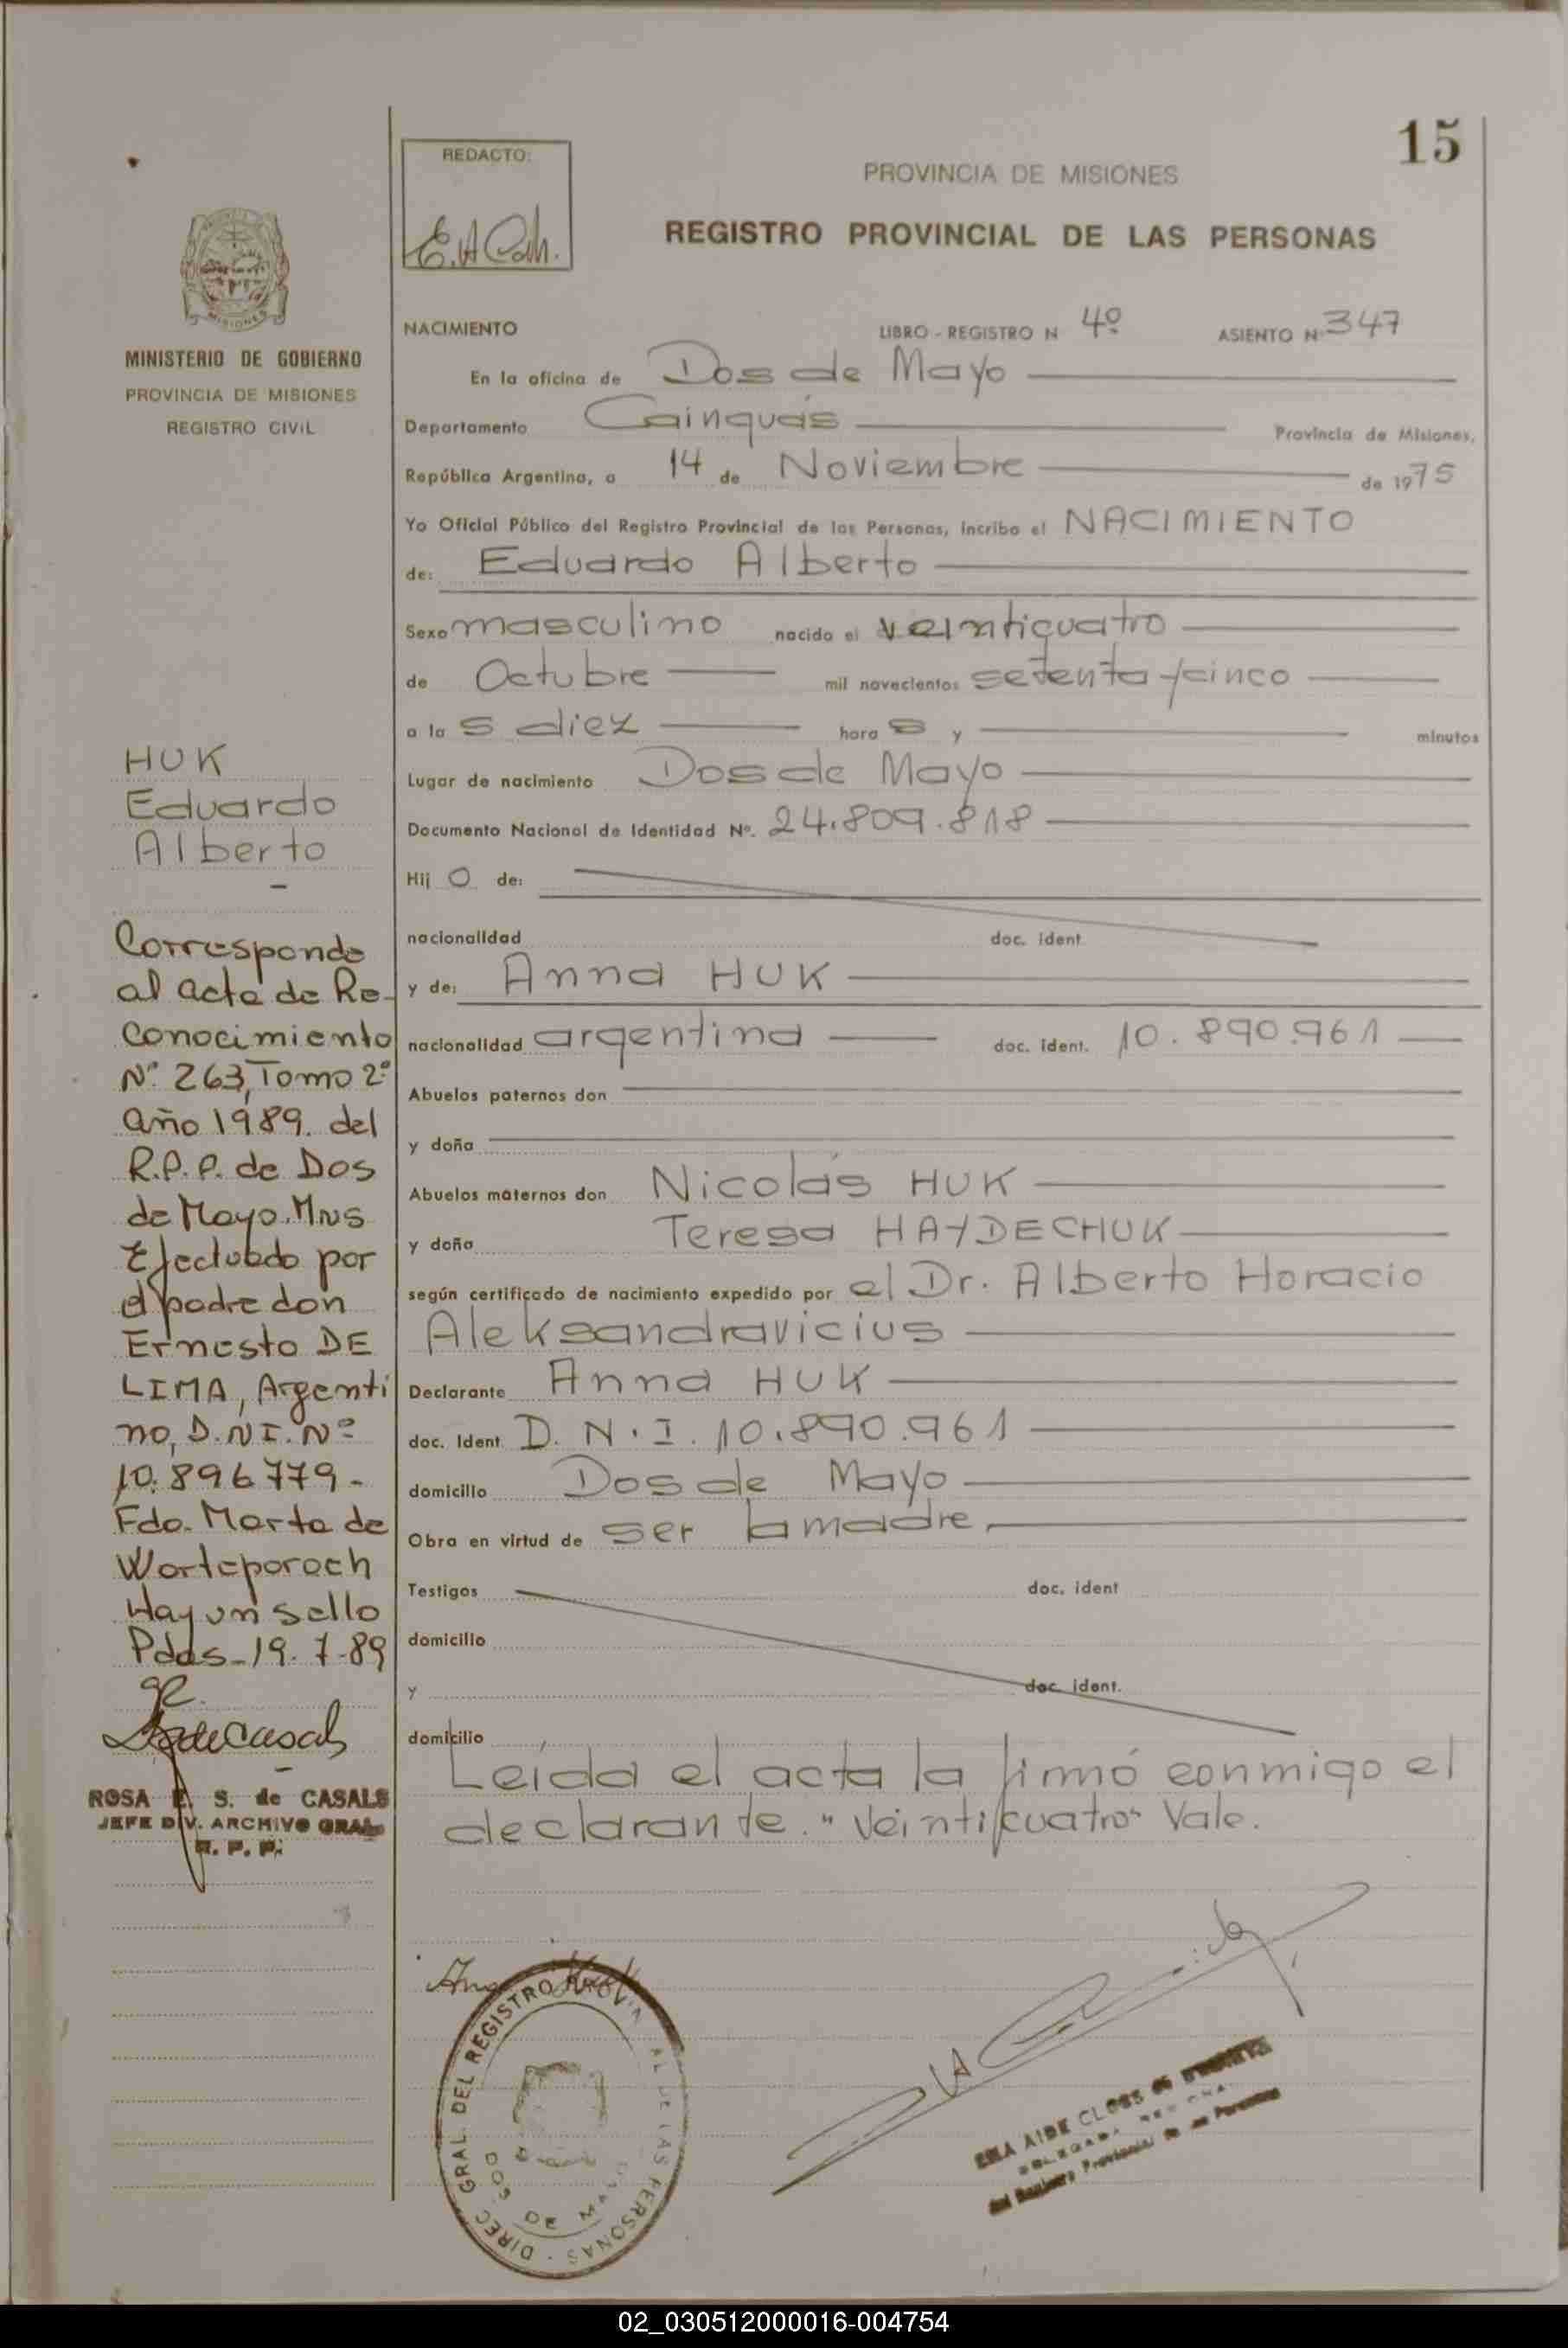 15
REDACTO:
PROVINCIA DE MISIONES
REGISTRO PROVINCIAL DE LAS PERSONAS
MISIONES
MINISTERIO DE GOBIERNO
PROVINCIA DE MISIONES
REGISTRO CIVIL
NACIMIENTO LIBRO - REGISTRO N 4º ASIENTO Nº 347
En la oficina de Dos de Mayo
Departamento Cainguás Provincia de Misiones,
República Argentina, a 14 de Noviembre de 1975
Yo Oficial Público del Registro Provincial de las Personas, incribo el NACIMIENTO
de: Eduardo Alberto
Sexo masculino nacido el veinticuatro
de Octubre mil novecientos setenta y cinco
a la s diez hora s y minutos
Lugar de nacimiento Dos de Mayo
Documento Nacional de Identidad Nº. 24.809.818
Hij o de:
nacionalidad doc. ident.
y de: Anna HUK
nacionalidad argentina doc. ident. 10.890.961
Abuelos paternos don
y doña
Abuelos maternos don Nicolás HUK
y doña Teresa HAYDECHUK
según certificado de nacimiento expedido por el Dr. Alberto Horacio
Aleksandravicius
Declarante Anna HUK
doc. Ident. D.N.I. 10.890.961
domicilio Dos de Mayo
Obra en virtud de ser la madre,
Testigos doc. ident
domicilio
y doc. ident.
domicilio
Leída el acta la firmó conmigo el
declarante. "Veinticuatro" Vale.
HUK
Eduardo
Alberto
Corresponde
al acta de Re-
conocimiento
Nº 263, Tomo 2º
año 1989. del
R.P.P. de Dos
de Mayo. Mns
Efectuado por
el padre don
Ernesto DE
LIMA, Argenti
no, D.NI. Nº
10.896779-
Fdo. Marta de
Worteporoch
Hay un sello
Pdas-19.7-89
ROSA E. S. de CASALS
JEFE DIV. ARCHIVO GRAL
R. P. P.
DIREC. GRAL. DEL REGISTRO PROVINCIAL DE LAS PERSONAS
DOS DE MAYO
AIDE CLOSS de
del Registro Provincial de las Personas
02_030512000016-004754